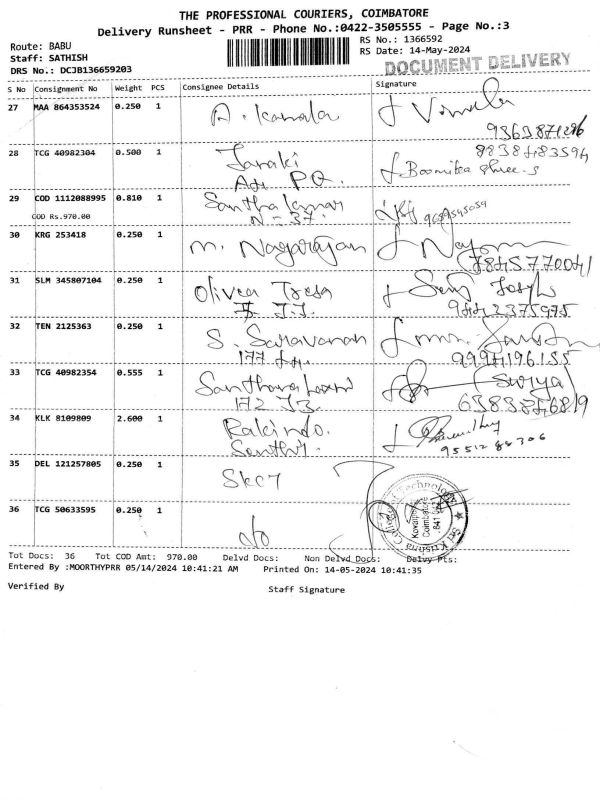 THE PROFESSIONAL COURIERS, COIMBATORE
Delivery Runsheet - PRR - Phone No.:0422-3505555 - Page No.:3
Route: BABU
Staff: SATHISH
DRS No.: DCJB136659203
RS No.: 1366592
RS Date: 14-May-2024
DOCUMENT DELIVERY
S No Consignment No Weight PCS Consignee Details Signature
27 MAA 864353524 0.250 1 A. Kamala
28 TCG 40982304 0.500 1 Janaki
8838483594
29 COD 1112088995 0.810 1 Santhakumar
COD Rs.970.00 N-37. 9659545059
30 KRG 253418 0.250 1 N. Nagarajan
7845770041
31 SLM 345807104 0.250 1 Olivea Tresa
9442375975
32 TEN 2125363 0.250 1 S. Saravanan
177 9994196155
33 TCG 40982354 0.555 1 (Suriya)
172
34 KLK 8109809 2.600 1 Rakindo
9551288306
35 DEL 121257805 0.250 1 SKCT
36 TCG 50633595 0.250 1
Sri Krishna College of Technology
Kovaipudur
Coimbatore
641 042
Tot Docs: 36 Tot COD Amt: 970.00 Delvd Docs: Non Delvd Docs: Delvy Pts:
Entered By :MOORTHYPRR 05/14/2024 10:41:21 AM Printed On: 14-05-2024 10:41:35
Verified By Staff Signature